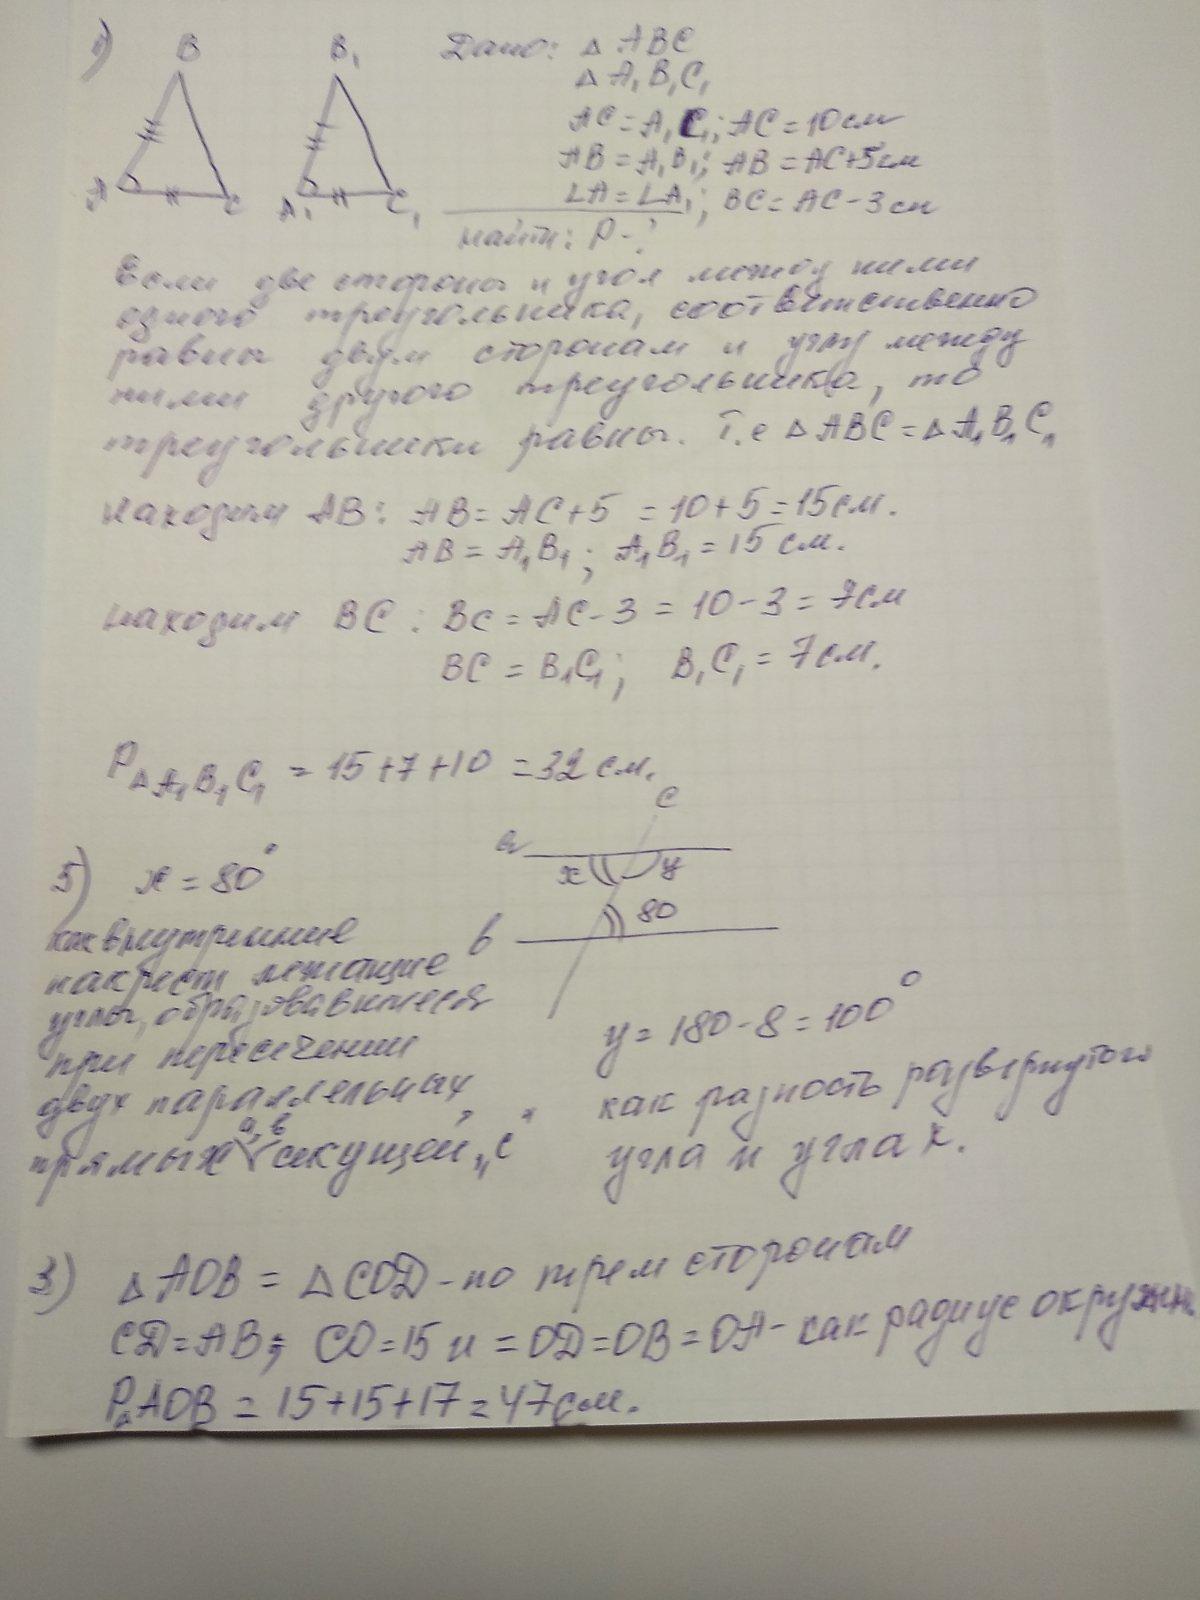 1)
B
B₁
A
C
A₁
C₁
Дано: △ ABC
△ A₁B₁C₁
AC = A₁C₁; AC = 10 см
AB = A₁B₁; AB = AC+5см
∠A = ∠A₁; BC = AC - 3 см
Найти: P - ?
Если две стороны и угол между ними
одного треугольника, соответственно
равны двум сторонам и углу между
ними другого треугольника, то
треугольники равны. Т.е △ ABC = △ A₁B₁C₁
Находим AB: AB = AC+5 = 10+5 = 15см.
AB = A₁B₁; A₁B₁ = 15 см.
Находим BC: BC = AC - 3 = 10 - 3 = 7см
BC = B₁C₁; B₁C₁ = 7см.
P△A₁B₁C₁ = 15+7+10 = 32 см.
c
a
x
y
b
80
5) x = 80°
как внутренние
накрест лежащие
углы, образовавшиеся
при пересечении
двух параллельных
прямых a, b секущей „c“
y = 180 - 8 = 100°
как разность развернутого
угла и угла x.
3) △ AOB = △ COD - по трем сторонам
CD = AB; CO = 15 и = OD = OB = OA - как радиус окружн.
P△AOB = 15+15+17 = 47см.